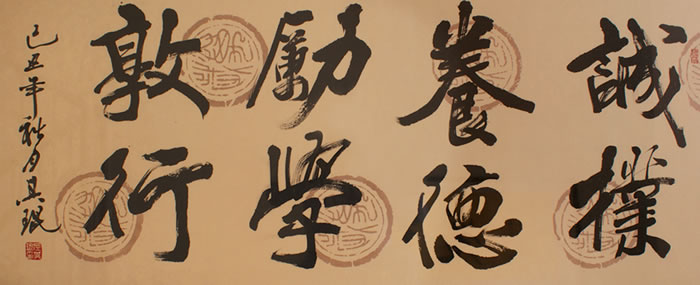 誠樸
養德
勵學
敦行
己丑年秋月其琨